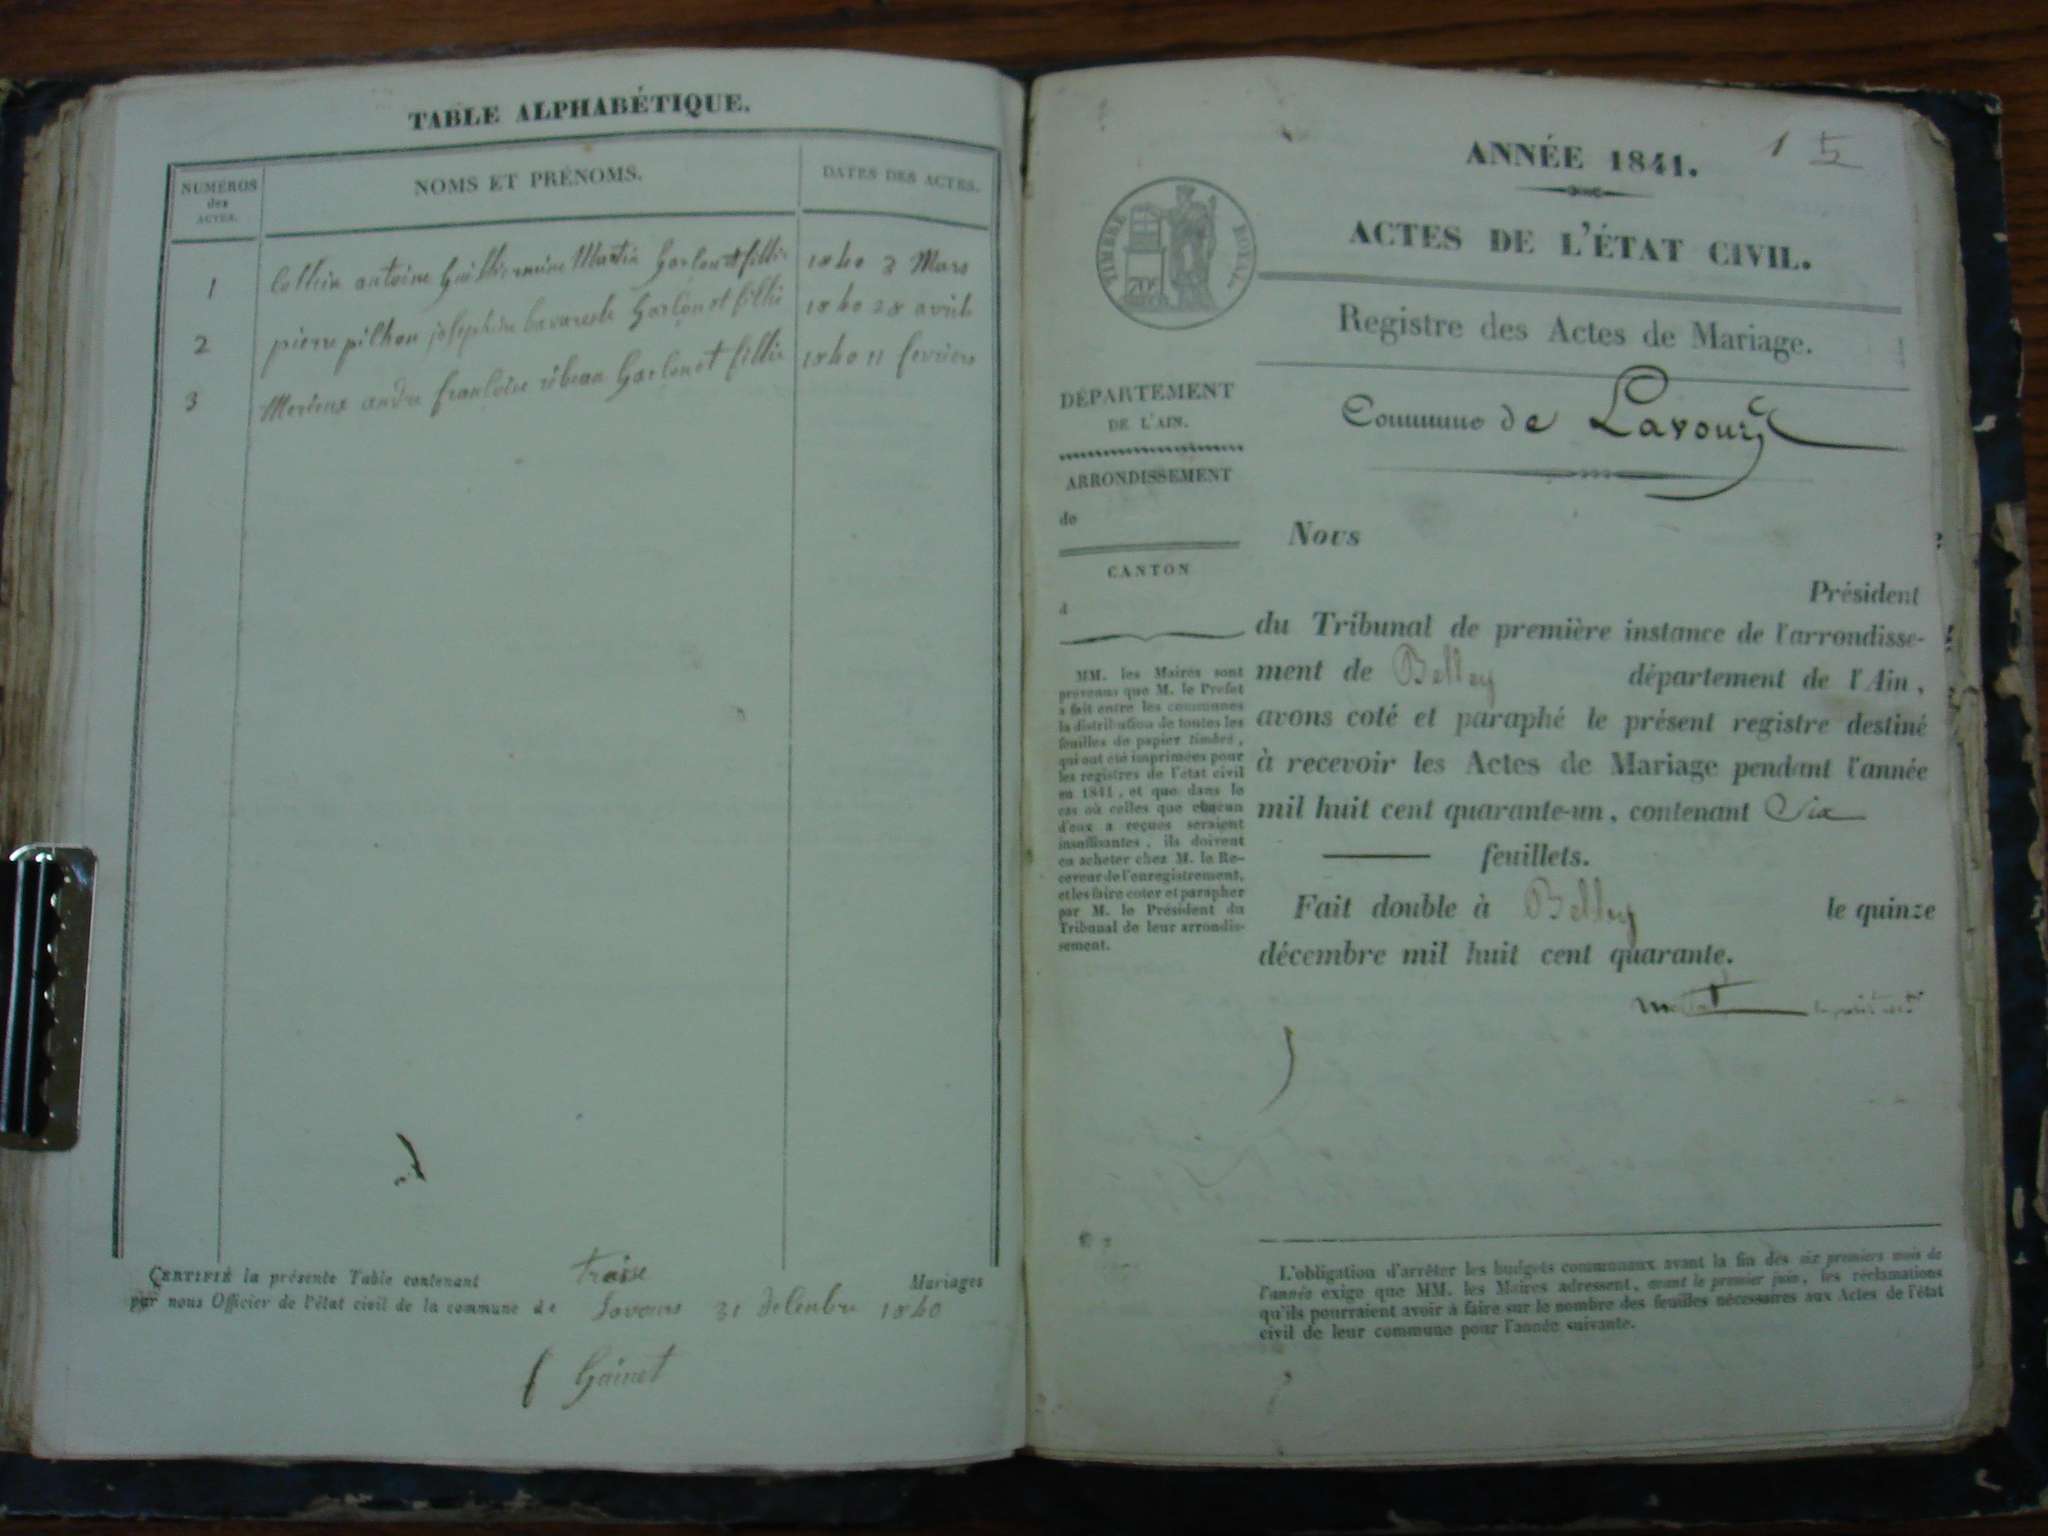 TABLE ALPHABÉTIQUE.
NUMÉROS
des
ACTES.
NOMS ET PRÉNOMS.
DATES DES ACTES.
1 antoine Martin 1840 3 Mars
2 pierre pilhon josephine 1840 28 avril
3 andre francoise 1840 11 fevrier
CERTIFIÉ la présente Table contenant Mariages
par nous Officier de l'état civil de la commune de Lavours 31 1840
Gainet
1 5
ANNÉE 1841.
ACTES DE L'ÉTAT CIVIL.
TIMBRE ROYAL
70c
Registre des Actes de Mariage.
Commune de Lavours
DÉPARTEMENT
DE L'AIN.
ARRONDISSEMENT
de
CANTON
d
MM. les Maires sont
prévenus que M. le Préfet
a fait entre les communes
la distribution de toutes les
feuilles de papier timbré,
qui ont été imprimées pour
les registres de l'état civil
en 1841, et que dans le
cas où celles que chacun
d'eux a reçues seraient
insuffisantes, ils doivent
en acheter chez M. le Re-
ceveur de l'enregistrement,
et les faire coter et parapher
par M. le Président du
Tribunal de leur arrondis-
sement.
Nous
Président
du Tribunal de première instance de l'arrondisse-
ment de Belley département de l'Ain,
avons coté et paraphé le présent registre destiné
à recevoir les Actes de Mariage pendant l'année
mil huit cent quarante-un, contenant Six
feuillets.
Fait double à Belley le quinze
décembre mil huit cent quarante.
L'obligation d'arrêter les budgets communaux avant la fin des six premiers mois de
l'année exige que MM. les Maires adressent, avant le premier juin, les réclamations
qu'ils pourraient avoir à faire sur le nombre des feuilles nécessaires aux Actes de l'état
civil de leur commune pour l'année suivante.